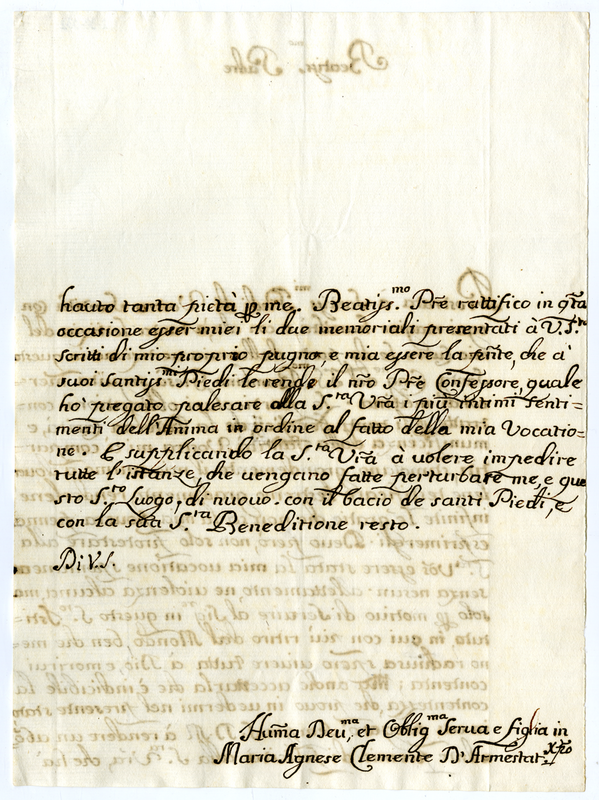 hauto tanta pietà p me. Beatiss.mo Pre rattifico in qta
occasione esser miei li due memoriali presentati à V.S.ra
scritti di mio proprio pugno, e mia essere la pnte, che a'
suoi santiss.mi Piedi le rende il nro Pre Confessore, quale
hò pregato palesare alla S.ra Vrã i più intimi senti=
menti dell'Anima in ordine al fatto della mia Vocatio=
ne. E supplicando la S.ra Vrã à volere impedire
tutte l'istanze, che vengano fatte perturbare me, e que
sto S.to Luogo, di nuovo con il bacio de santi Piedi, e
con la sua S.ta Beneditione resto.
Di V.S.
Humã Deu.ma, et Oblig.ma Serua e figlia in Xpo
Maria Agnese Clemente D'Armestat